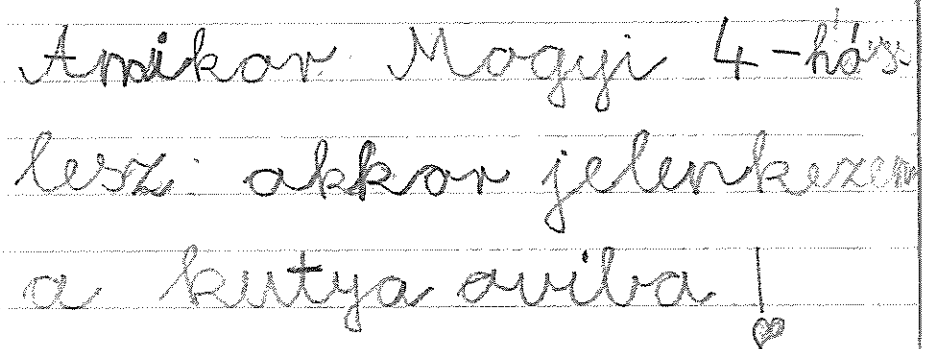 Amikor Mogyi 4-hós
lesz akkor jelenkezem
a kutya oviba!